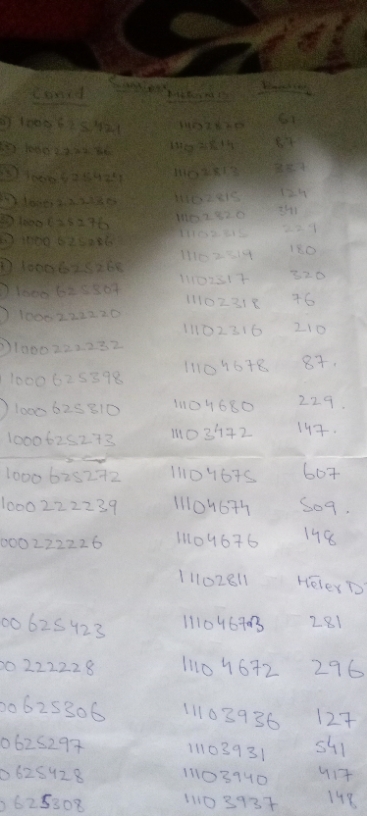 Conid
1000625421 11102820 61
1000222236 11102819 87
1000625424 11102813 357
1000222230 11102815 124
1000625276 11102820 341
1000625286 229
1000625268 11102319 180
1000625307 11102317 320
1000222220 11102318 76
1000222232 11102316 210
1000625398 11104678 87.
1000625310 11104680 229.
1000625273 11103472 147.
1000625272 11104675 607
1000222239 11104674 509.
000222226 11104676 148
11102811 Meter D
00625423 281
00222228 11104672 296
00625306 11103936 127
0625297 11103931 541
0625428 11103940 417
0625308 11103937 148